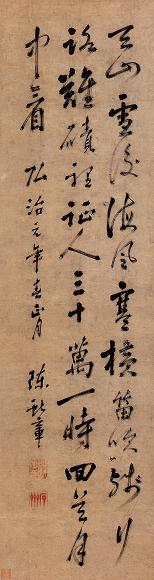 天山雪後海風寒橫笛吹行
路難磧裡征人三十萬一時回首月
中看 弘治元年春月 陳獻章